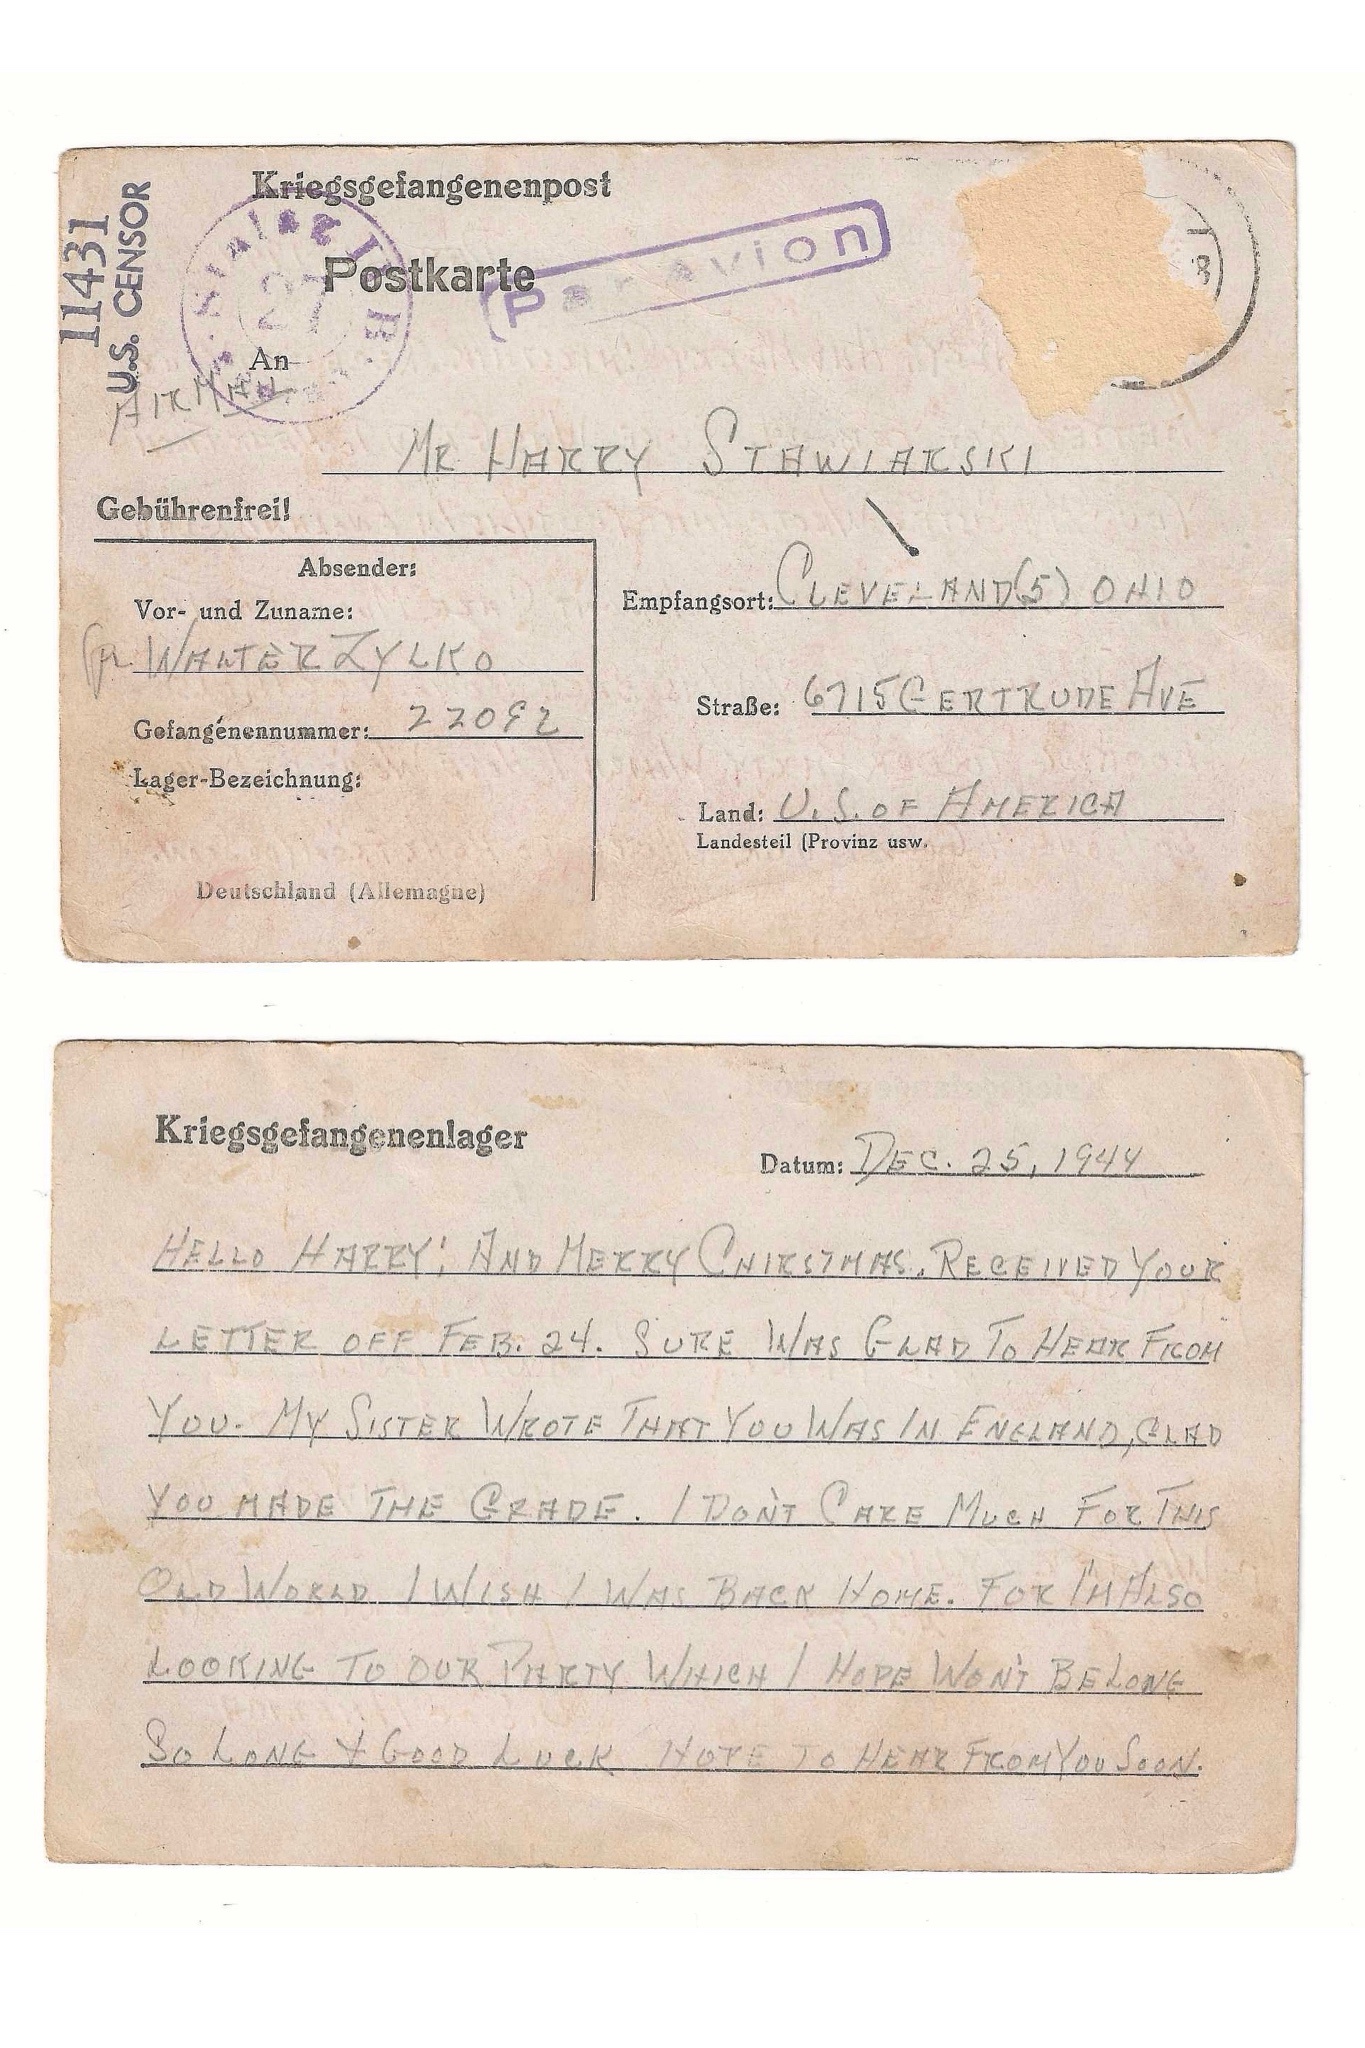 Kriegsgefangenenpost
11431
U.S. CENSOR
Postkarte
Par avion
Stalag II B
27
8
An
AIRMAIL
MR HARRY STAWIARSKI
Gebührenfrei!
Absender:
Vor- und Zuname:
WALTER ZYLKO
Gefangenennummer: 22092
Lager-Bezeichnung:
Deutschland (Allemagne)
Empfangsort: CLEVELAND(5) OHIO
Straße: 6715 GERTRUDE AVE
Land: U.S. OF AMERICA
Landesteil (Provinz usw.
Kriegsgefangenenlager
Datum: DEC. 25, 1944
HELLO HARRY; AND MERRY CHIRSTMAS. RECEIVED YOUR
LETTER OFF FEB. 24. SURE WAS GLAD TO HEAR FROM
YOU. MY SISTER WROTE THAT YOU WAS IN ENGLAND, GLAD
YOU MADE THE GRADE. I DON'T CARE MUCH FOR THIS
OLD WORLD I WISH I WAS BACK HOME. FOR I'M ALSO
LOOKING TO OUR PARTY WHICH I HOPE WON'T BE LONG
SO LONG & GOOD LUCK HOPE TO HEAR FROM YOU SOON.